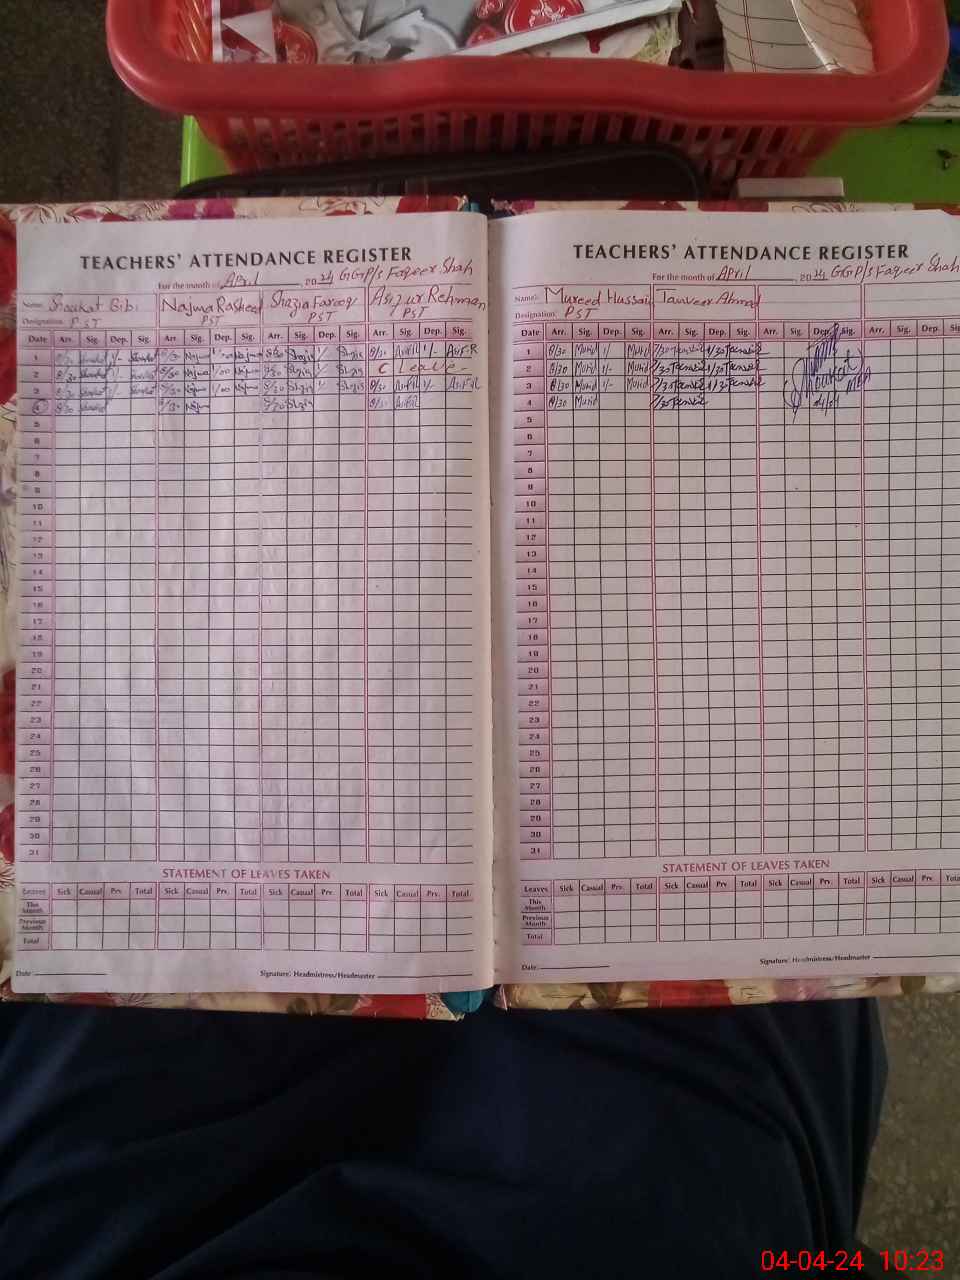 TEACHERS' ATTENDANCE REGISTER
For the month of April 2024 GGP/S Faqeer Shah
Name: Shaukat Bibi Najma Rasheed Shazia Farooq Asif ur Rehman
Designation: PST PST PST PST
Date Arr. Sig. Dep. Sig. Arr. Sig. Dep. Sig. Arr. Sig. Dep. Sig. Arr. Sig. Dep. Sig.
1 8/30 1/- 8/30 Najma 1/00 Najma 8/30 Shazia 1/- Shazia 8/30 1/-
2 8/30 1/- 8/30 Najma 1/00 Najma 8/30 Shazia 1/- Shazia C Leave -
3 8/30 1/- 8/30 Najma 1/00 Najma 8/30 Shazia 1/- Shazia 8/30 1/-
4 8/30 8/30 Najma 8/30 Shazia 8/30
5
6
7
8
9
10
11
12
13
14
15
16
17
18
19
20
21
22
23
24
25
26
27
28
29
30
31
STATEMENT OF LEAVES TAKEN
Leaves Sick Casual Prv. Total Sick Casual Prv. Total Sick Casual Prv. Total Sick Casual Prv. Total
This Month
Previous Month
Total
Date: Signature: Headmistress/Headmaster
TEACHERS' ATTENDANCE REGISTER
For the month of April 2024 GGP/S Faqeer Shah
Name: Mureed Hussain Tanveer Ahmad
Designation: PST
Date Arr. Sig. Dep. Sig. Arr. Sig. Dep. Sig. Arr. Sig. Dep. Sig. Arr. Sig. Dep. Sig.
1 8/30 Murid 1/- Murid 7/30 1/30
2 8/30 Murid 1/- Murid 7/30 1/30
3 8/30 Murid 1/- Murid 7/30 1/30
4 8/30 Murid 7/30
5
6
7
8
9
10
11
12
13
14
15
16
17
18
19
20
21
22
23
24
25
26
27
28
29
30
31
STATEMENT OF LEAVES TAKEN
Leaves Sick Casual Prv. Total Sick Casual Prv. Total Sick Casual Prv. Total Sick Casual Prv. Total
This Month
Previous Month
Total
Date: Signature: Headmistress/Headmaster
04-04-24 10:23